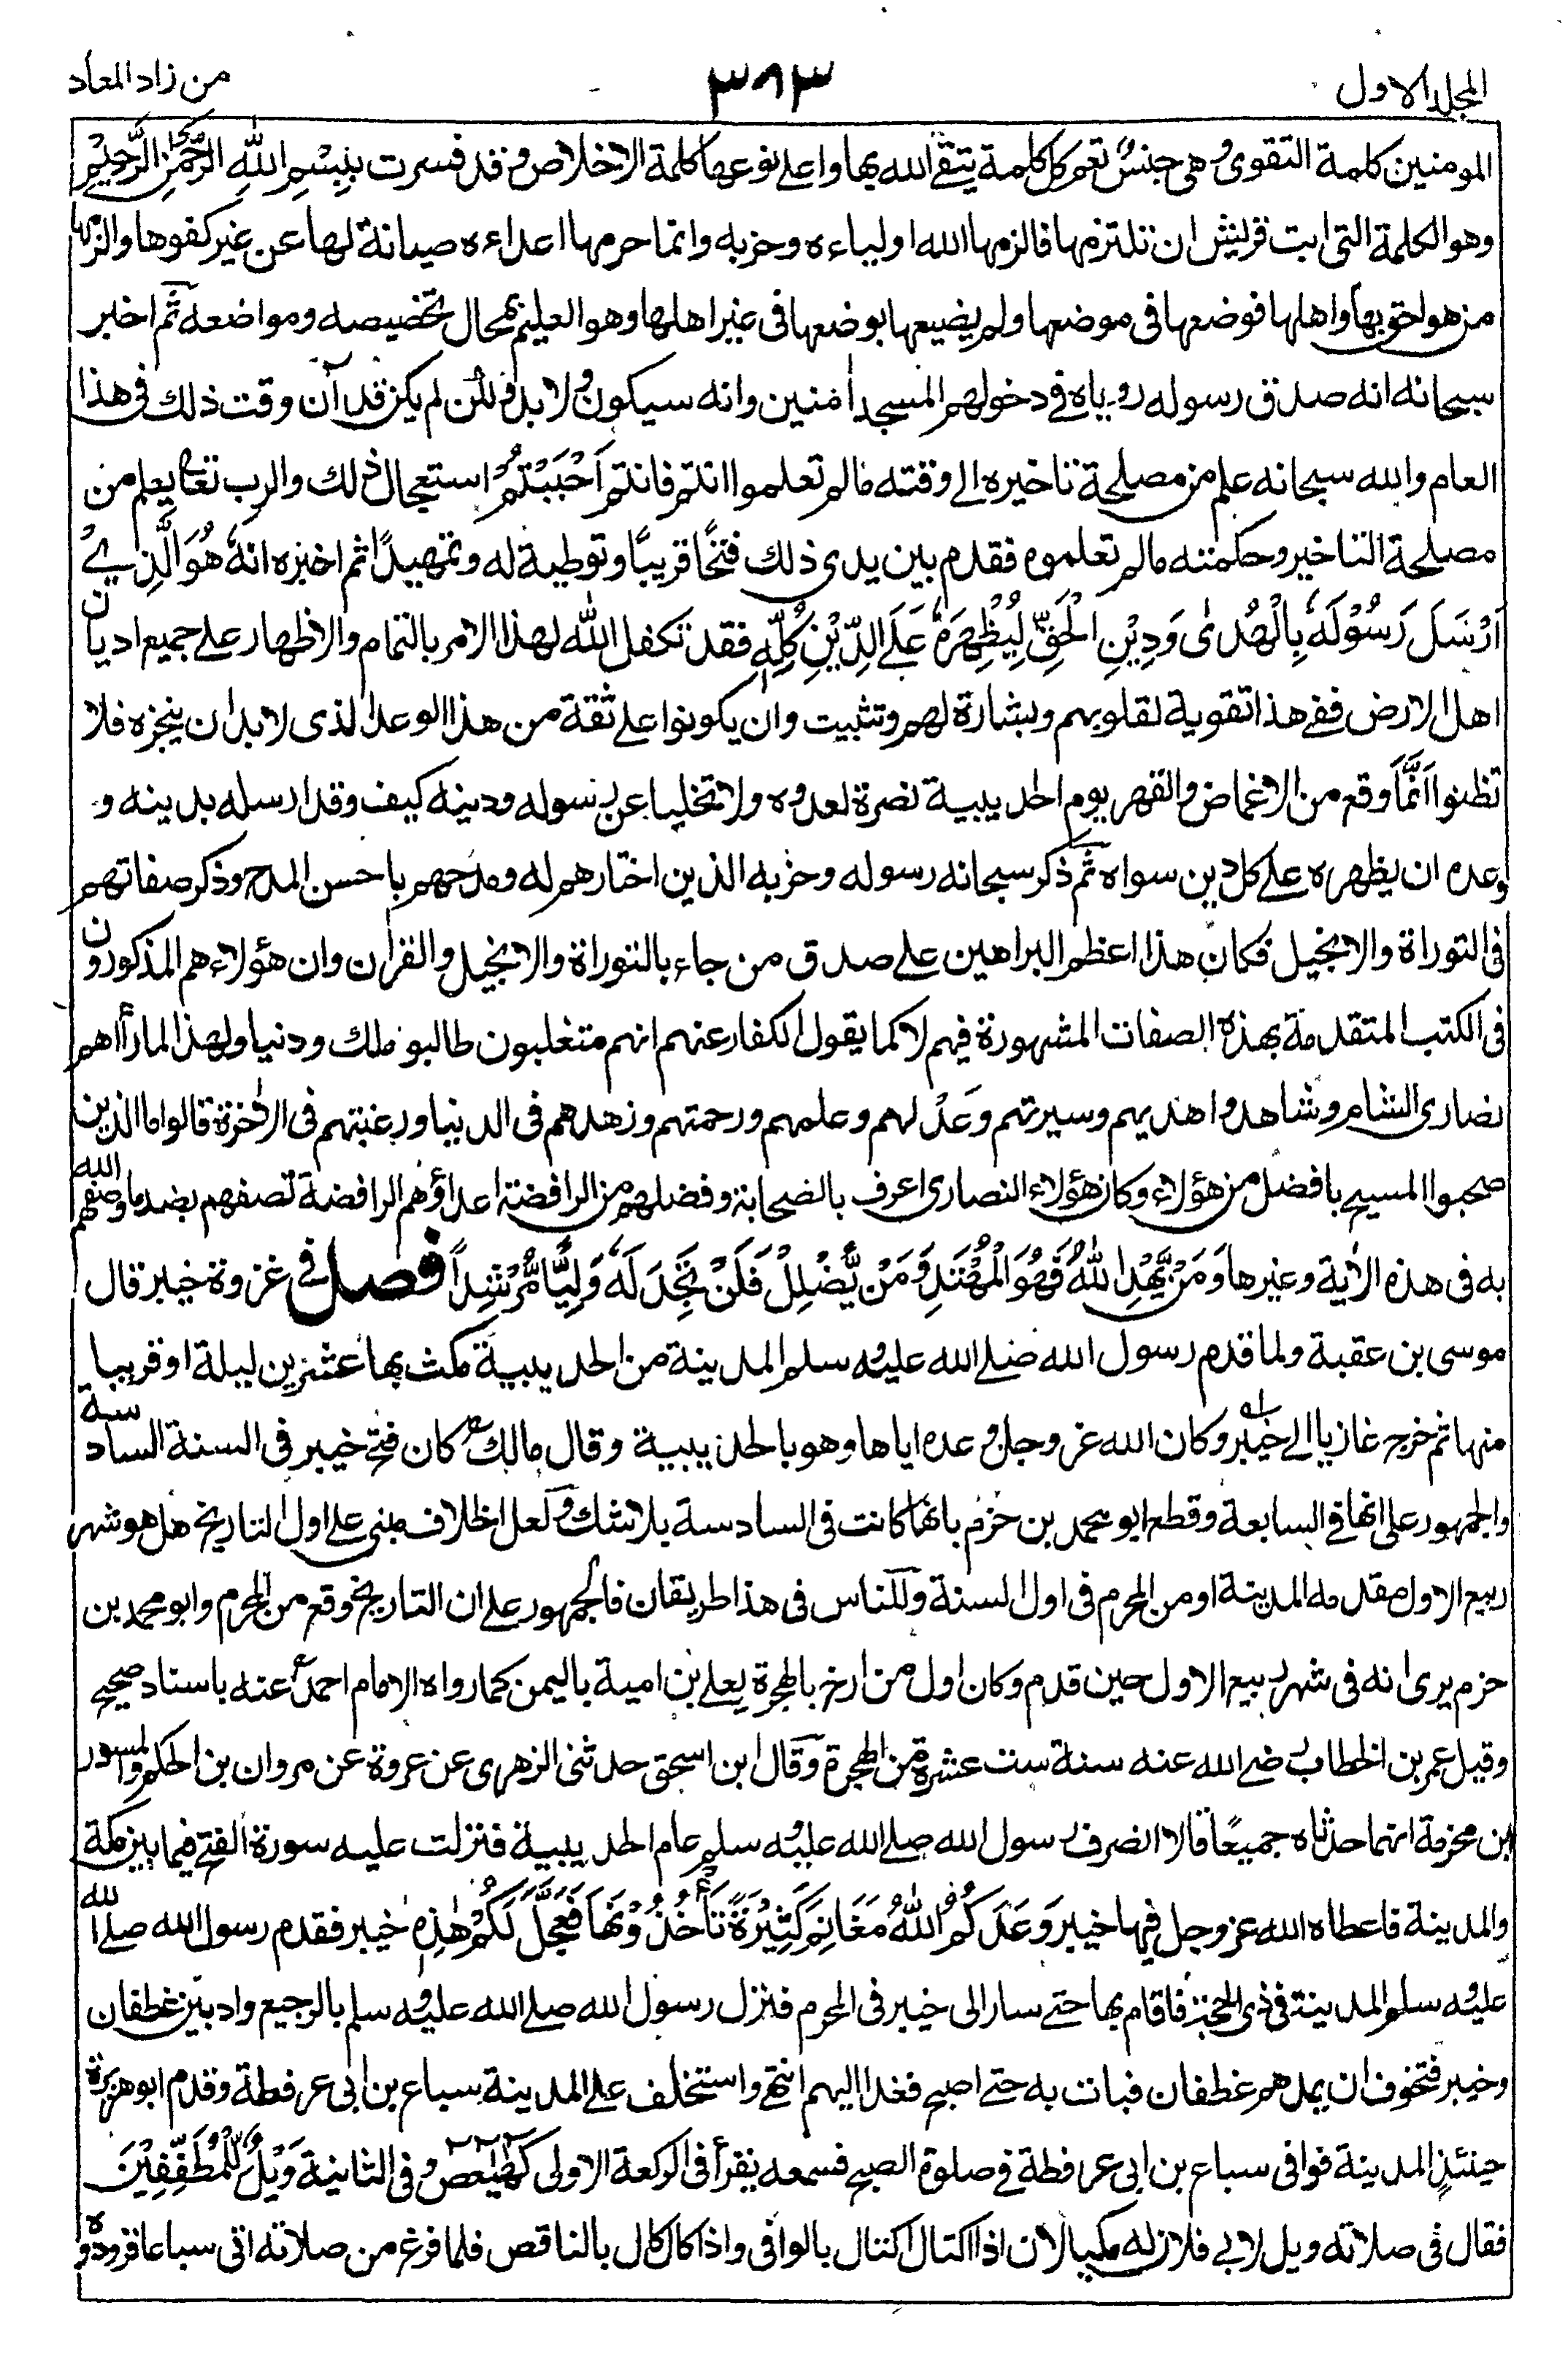 المجلد الاول
٣٨٣
من زاد المعاد
المومنين كلمة التقوى وهى جنس تعم كل كلمة يتقى الله بها واعلى نوعها كلمة الاخلاص وقد فسرت ببِسْمِ اللهِ الرَّحْمٰنِ الرَّحِيْمِ
وهو الكلمة التى ابت قريش ان تلتزمها فالزمها الله اولياءه وحزبه وانما حرمها اعداءه صيانة لها عن غير كفوها والزمها
من هو احق بها واهلها فوضعها فى موضعها ولم يضيعها بوضعها فى غير اهلها وهو العليم بمحال تخصيصه ومواضعه ثم اخبر
سبحانه انه صدق رسوله روياه فے دخولهم المسجد اٰمنين وانه سيكون ولا بد ولكن لم يكن قد آن وقت ذلك فى هذا
العام والله سبحانه علم من مصلحة تاخيره الے وقته مالم تعلموا انتم فانتم اَحْبَبْتُمْ استعجال ذلك والرب تعالى يعلم من
مصلحة التاخير وحكمته مالم تعلموه فقدم بين يدى ذلك فتحًا قريبًا وتوطية له وتمهيدًا ثم اخبره انه هُوَ الَّذِيْ
اَرْسَلَ رَسُوْلَهٗ بِالْهُدٰى وَدِيْنِ الْحَقِّ لِيُظْهِرَهٗ عَلَى الدِّيْنِ كُلِّهٖ فقد تكفل الله لهذا الامر بالتمام والاظهار على جميع اديان
اهل الارض ففے هذا تقوية لقلوبهم وبشارة لهم وتثبيت وان يكونوا على ثقة من هذا الوعد الذى لا بد ان ينجزه فلا
تظنوا اَنَّمَا وقع من الاغماض والقهر يوم الحديبية نصرة لعدوه ولا تخليا عن رسوله ودينه كيف وقد ارسله بدينه و
وعده ان يظهره على كل دين سواه ثم ذكر سبحانه رسوله وحزبه الذين اختارهم له ومدحهم باحسن المدح وذكر صفاتهم
فى التوراة والانجيل فكان هذا اعظم البراهين على صدق من جاء بالتوراة والانجيل والقرأن وان هؤلاء هم المذكورون
فى الكتب المتقدمة بهذه الصفات المشهورة فيهم لا كما يقول الكفار عنهم انهم متغلبون طالبو ملك ودنيا ولهذا لما رأاهم
نصارى الشام وشاهدوا هديهم وسيرتهم وعَدْلهم وعلمهم ورحمتهم وزهدهم فى الدنيا ورغبتهم فى الاٰخرة قالوا ما الذين
صحبوا المسيح بافضل من هؤلاء وكان هؤلاء النصارى اعرف بالصحابة وفضلهم من الرافضة اعداؤهم الرافضة تصفهم بضد ما وصفهم الله
به فى هذه الاٰية وغيرها وَمَنْ يَّهْدِ اللّٰهُ فَهُوَ الْمُهْتَدِ وَمَنْ يُّضْلِلْ فَلَنْ تَجِدَ لَهٗ وَلِيًّا مُّرْشِداً فصل فے غزوة خيبر قال
موسى بن عقبة ولما قدم رسول الله صلى الله عليه وسلم المدينة من الحديبية مكث بها عشرين ليلة او قريبا
منها ثم خرج غازيا الے خيبر وكان الله عز وجل وعده اياها وهو بالحديبية وقال مالك كان فتح خيبر فى السنة السادسة
والجمهور على انها فے السابعة وقطع ابو محمد بن حزم بانها كانت فى السادسة بلا شك ولعل الخلاف مبنى على اول التاريخ هل هو شهر
ربيع الاول مقدمه المدينة او من المحرم فى اول السنة وللناس فى هذا طريقان فالجمهور على ان التاريخ وقع من المحرم وابو محمد بن
حزم يرى انه فى شهر ربيع الاول حين قدم وكان اول من ارخ بالهجرة يعلى بن امية باليمن كما رواه الامام احمد عنه باسناد صحيح
وقيل عمر بن الخطاب رضى الله عنه سنة ست عشرة من الهجرة وقال ابن اسحق حدثنى الزهرى عن عروة عن مروان بن الحكم والمسور
بن مخرمة انهما حدثاه جميعًا قالا انصرف رسول الله صلى الله عليه وسلم عام الحديبية فنزلت عليه سورة الفتح فيما بين مكة
والمدينة فاعطاه الله عز وجل فيها خيبر وَعَدَكُمُ اللّٰهُ مَغَانِمَ كَثِيْرَةً تَأْخُذُوْنَهَا فَعَجَّلَ لَكُمْ هٰذِهٖ خيبر فقدم رسول الله صلى الله
عليه وسلم المدينة فى ذى الحجة فاقام بها حتے سار الى خيبر فى المحرم فنزل رسول الله صلى الله عليه وسلم بالرجيع واد بين غطفان
وخيبر فتخوف ان يمدهم غطفان فبات به حتے اصبح فغدا اليهم انتهى واستخلف على المدينة سباع بن ابى عرفطة وقدم ابو هريرة
حينئذٍ المدينة فوافى سباع بن ابى عرفطة فے صلوة الصبح فسمعه يقرأ فى الركعة الاولى كٓهٰيٰعٓصٓ وفى الثانية وَيْلٌ لِّلْمُطَفِّفِيْنَ
فقال فى صلاته ويل لابى فلان له مكيالان اذا اكتال اكتال بالوافى واذا كال كال بالناقص فلما فرغ من صلاته اتى سباعا فزوده